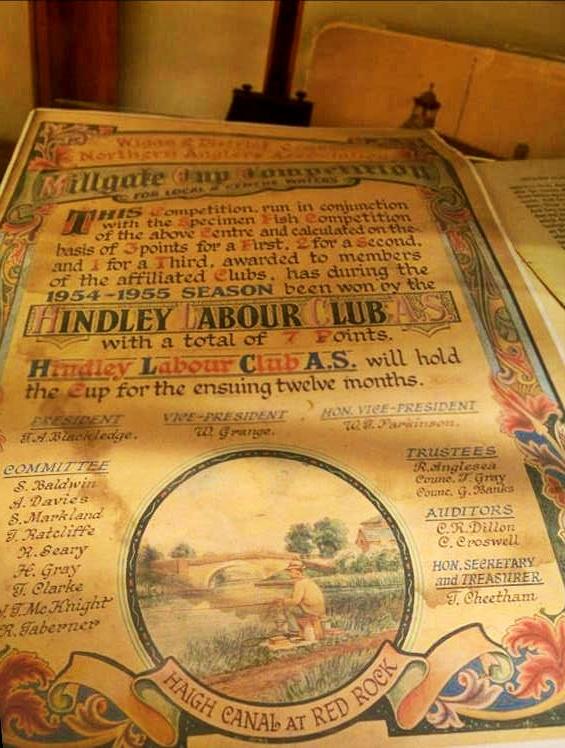 Wigan & District
Northern Anglers Association
Millgate Cup Competition
FOR LOCAL & CENTRE WATERS
THIS Competition, run in conjunction
with the Specimen Fish Competition
of the above Centre and calculated on the
basis of 3 points for a First, 2 for a Second,
and 1 for a Third, awarded to members
of the affiliated Clubs, has during the
1954-1955 SEASON been won by the
HINDLEY LABOUR CLUB A.S.
with a total of 7 Points.
Hindley Labour Club A.S. will hold
the Cup for the ensuing twelve months.
PRESIDENT
T.A. Blackledge.
VICE-PRESIDENT
W. Grange.
HON. VICE-PRESIDENT
W. Parkinson.
COMMITTEE
S. Baldwin
A. Davies
S. Markland
T. Ratcliffe
R. Seary
H. Gray
T. Clarke
T. McKnight
R. Taberner
TRUSTEES
R. Anglesea
Counc. T. Gray
Counc. G. Banks
AUDITORS
C.R. Dillon
C. Croswell
HON. SECRETARY
and TREASURER
T. Cheetham
HAIGH CANAL AT RED ROCK